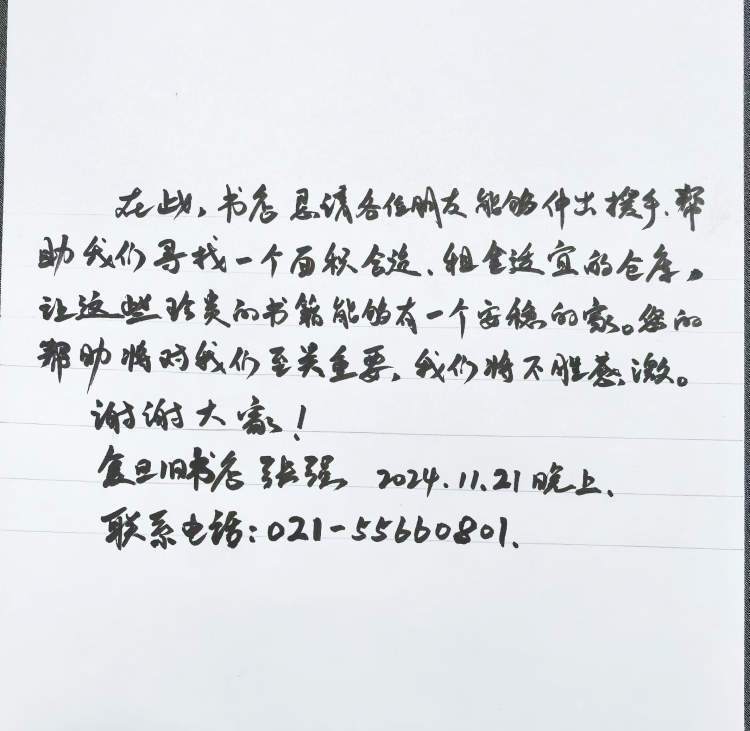 在此，书店恳请各位朋友能够伸出援手、帮
助我们寻找一个面积合适、租金适宜的仓库，
让这些珍贵的书籍能够有一个安稳的家。您的
帮助将对我们至关重要，我们将不胜感激。
谢谢大家！
复旦旧书店 张强 2024.11.21晚上.
联系电话：021-55660801.